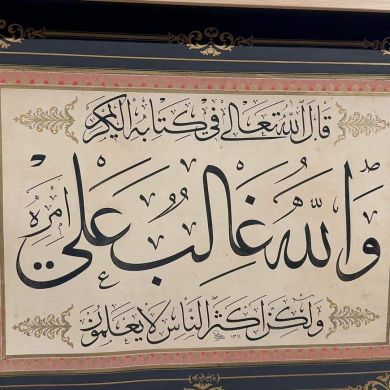 قال الله تعالى في كتابه الكريم
والله غالب على امره
ولكن اكثر الناس لا يعلمون